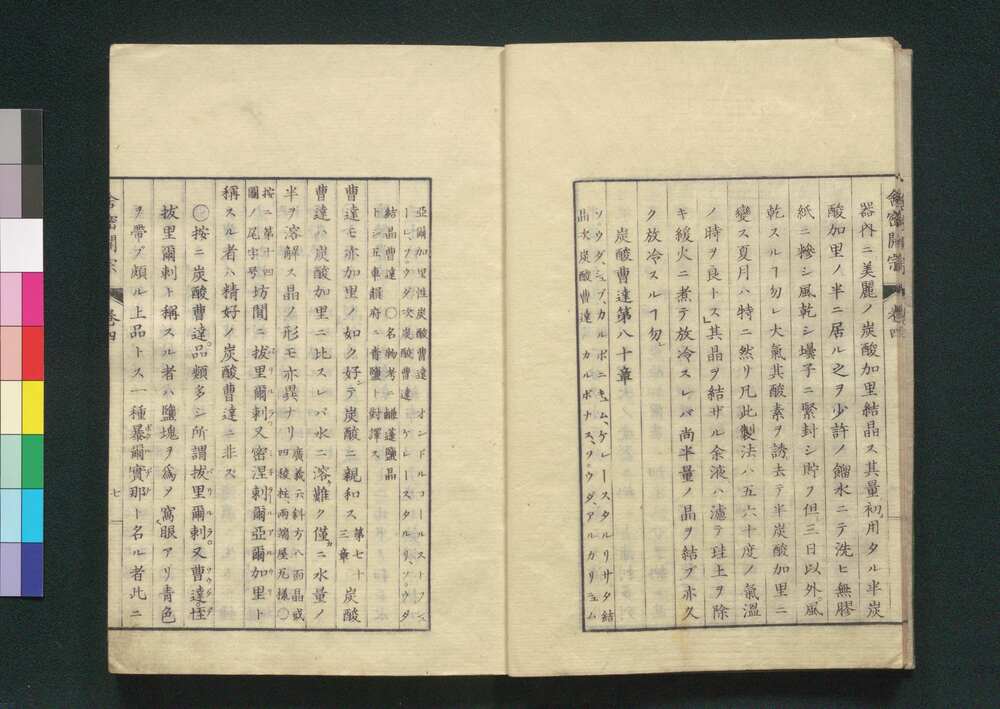 舎密開宗 巻四
器內ニ美麗ノ炭酸加里結晶ス其量初用タル半炭
酸加里ノ半ニ居ル之ヲ少許ノ餾水ニテ洗ヒ無膠
紙ニ糝シ風乾シ壜子ニ緊封シ貯フ但三日以外風
乾スルヿ勿レ大氣其酸素ヲ誘去テ半炭酸加里ニ
變ス夏月ハ特ニ然リ凡此製法ハ五六十度ノ氣溫
ノ時ヲ良トス其晶ヲ結ザル余液ハ濾テ硅土ヲ除
キ緩火ニ煮テ放冷スレバ尚半量ノ晶ヲ結ブ亦久
ク放冷スルヿ勿レ
炭酸曹達第八十章
ソウダ、シュブ、カルボニキュム、ケレースタルリサタ 結
晶水炭酸曹達 カルボナス、ソウダ、アルカリシュム
亞爾加里性炭酸曹達 オンドルコールストーフシュ
ーレ、ソウダ 次炭酸曹達 ケレースタルリ、ソウダ
結晶曹達 ○名物考ニ蓬鹽晶
トシ五車韻府ニ青鹽ト對譯ス
曹達モ亦加里ノ如ク好テ炭酸ニ親和ス 第七十三章 炭酸
曹達ハ炭酸加里ニ比スレバ水ニ溶難ク僅ニ水量ノ
半ヲ溶解ス晶ノ形モ亦異ナリ 廣義云斜方八面晶或ノ四稜柱、兩端屋瓦樣、○
按ニ第十四圖ノ尾字号 坊間ニ拔里爾剌又密涅剌爾亞爾加里ト
稱スル者ハ精好ノ炭酸曹達ニ非ス
○按ニ炭酸曹達品類多シ所謂拔里爾剌又曹達性
拔里爾剌ト稱スル者ハ鹽塊ヲ爲ヲ窩眼アリ青色
ヲ帶ブ頗ル上品トス一種暴爾實那ト名ル者此ニ
舎密開宗 巻四 七